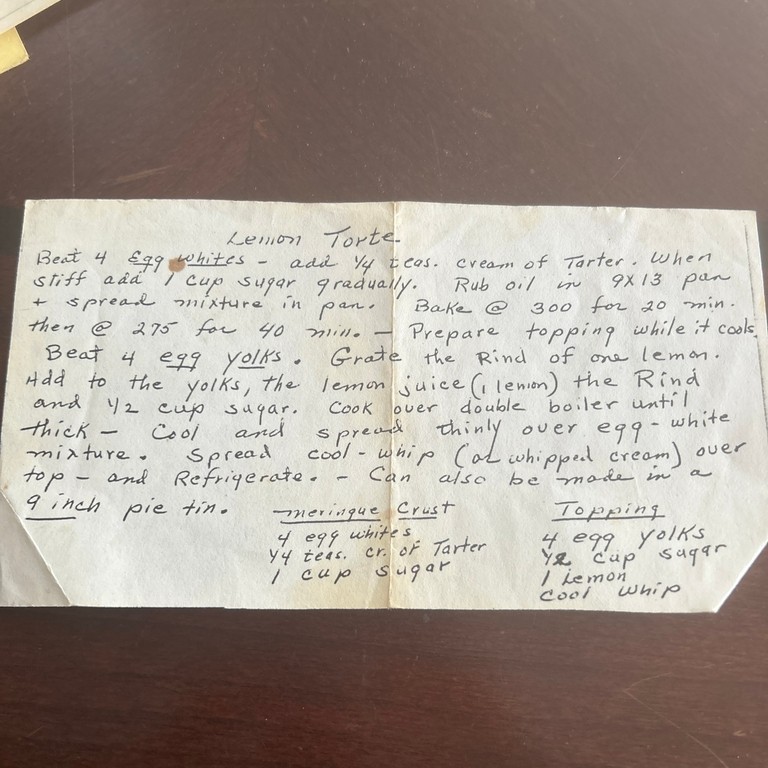 Lemon Torte
Beat 4 Egg whites - add 1/4 teas. cream of Tarter. When
stiff add 1 cup sugar gradually. Rub oil in 9X13 pan
+ spread mixture in pan. Bake @ 300 for 20 min.
then @ 275 for 40 min. - Prepare topping while it cools.
Beat 4 egg yolks. Grate the Rind of one lemon.
Add to the yolks, the lemon juice (1 lemon) the Rind
and 1/2 cup sugar. Cook over double boiler until
thick - Cool and spread thinly over egg-white
mixture. Spread cool-whip (or whipped cream) over
top - and Refrigerate. - Can also be made in a
9 inch pie tin.
Meringue Crust
4 egg whites
1/4 teas. cr. of Tarter
1 cup sugar
Topping
4 egg yolks
1/2 cup sugar
1 Lemon
Cool whip